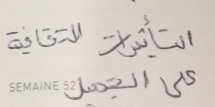 التأثيرات الثقافية
على التجميل
SEMAINE 52